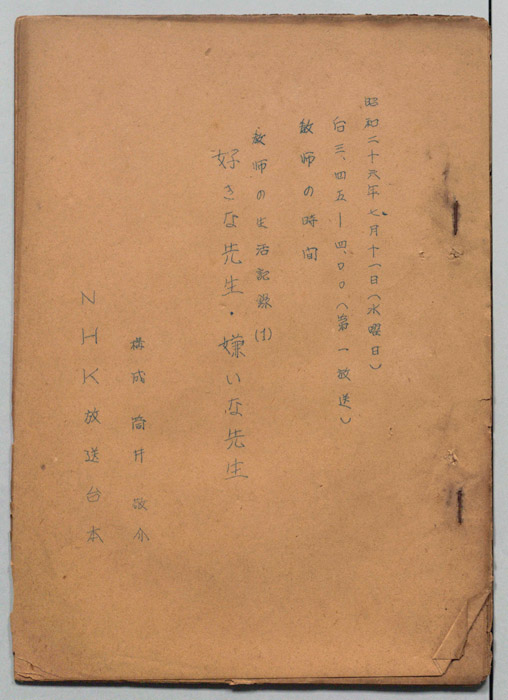 昭和二十六年七月十一日(水曜日)
后三、四五―四、〇〇(第一放送)
教師の時間
教師の生活記録(1)
好きな先生・嫌いな先生
構成 筒井敬介
NHK放送台本